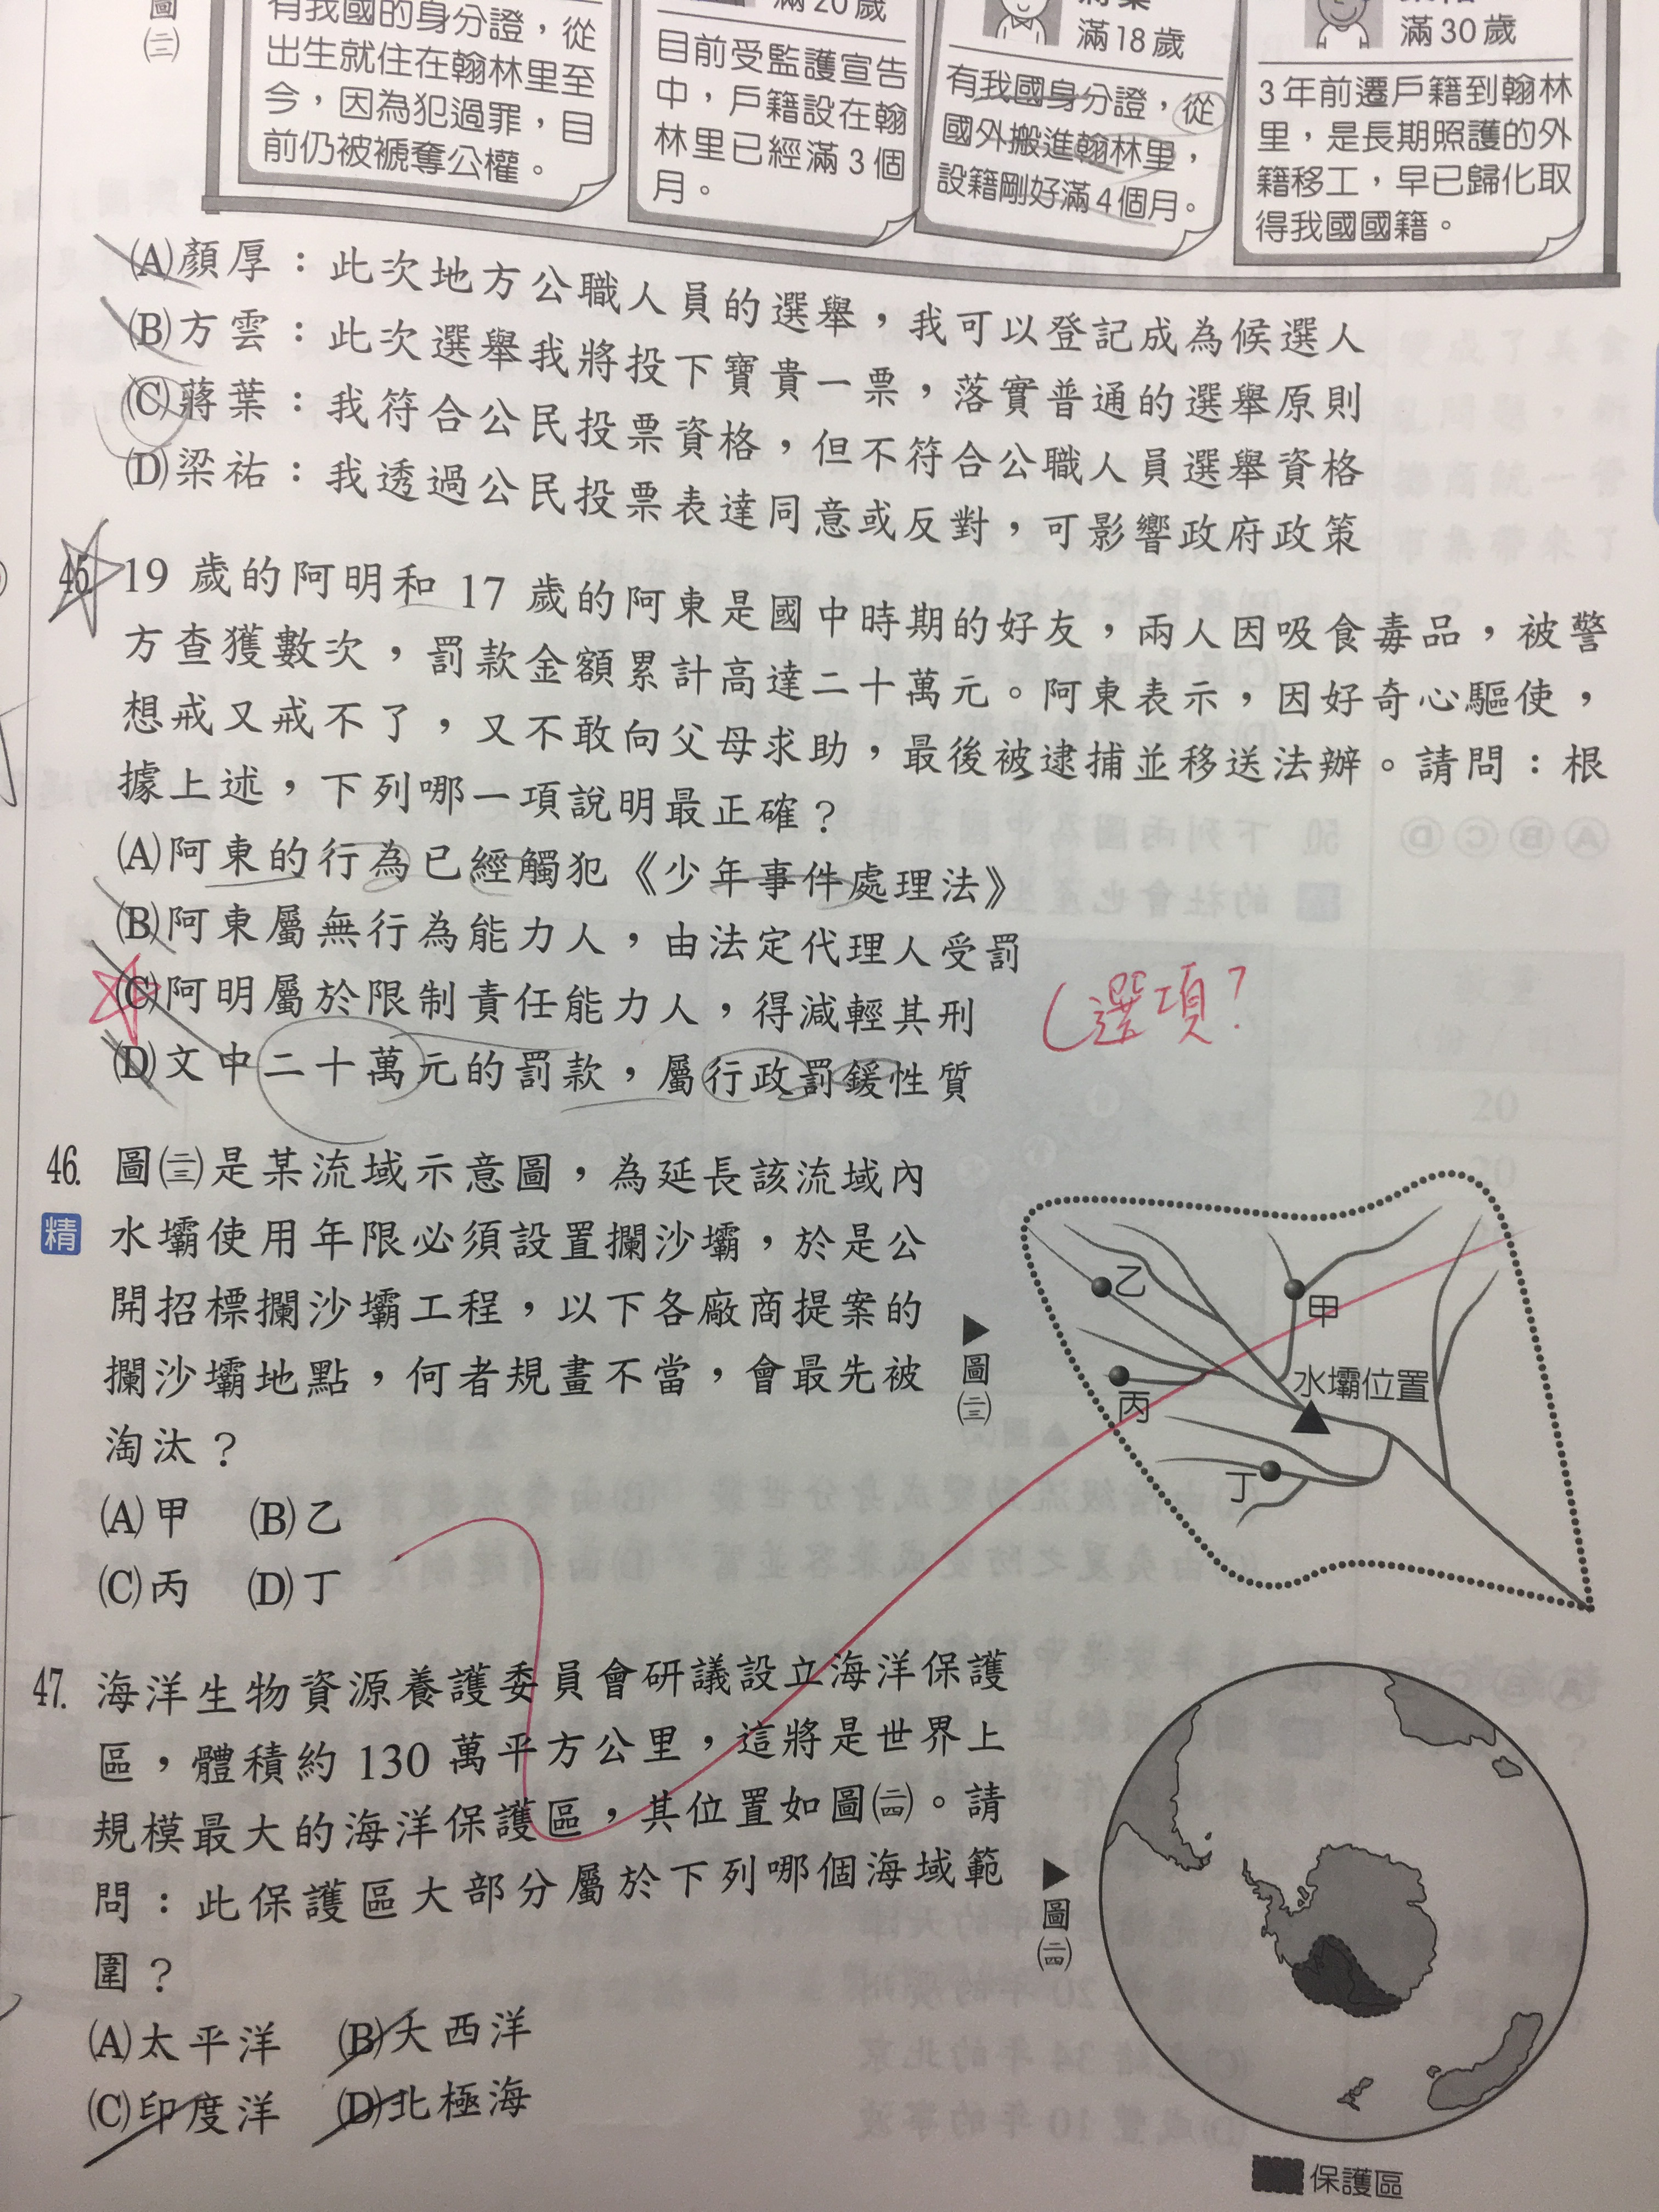 圖
㈡
有我國的身分證，從
出生就住在翰林里至
今，因為犯過罪，目
前仍被褫奪公權。
滿20歲
目前受監護宣告
中，戶籍設在翰
林里已經滿3個
月。
滿18歲
有我國身分證，從
國外搬進翰林里，
設籍剛好滿4個月。
滿30歲
3年前遷戶籍到翰林
里，是長期照護的外
籍移工，早已歸化取
得我國國籍。
(A)顏厚：此次地方公職人員的選舉，我可以登記成為候選人
(B)方雲：此次選舉我將投下寶貴一票，落實普通的選舉原則
(C)蔣葉：我符合公民投票資格，但不符合公職人員選舉資格
(D)梁祐：我透過公民投票表達同意或反對，可影響政府政策
45. 19歲的阿明和17歲的阿東是國中時期的好友，兩人因吸食毒品，被警
方查獲數次，罰款金額累計高達二十萬元。阿東表示，因好奇心驅使，
想戒又戒不了，又不敢向父母求助，最後被逮捕並移送法辦。請問：根
據上述，下列哪一項說明最正確？
(A)阿東的行為已經觸犯《少年事件處理法》
(B)阿東屬無行為能力人，由法定代理人受罰
(C)阿明屬於限制責任能力人，得減輕其刑
(D)文中二十萬元的罰款，屬行政罰鍰性質
選項？
46. 圖(二三)是某流域示意圖，為延長該流域內
精
水壩使用年限必須設置攔沙壩，於是公
開招標攔沙壩工程，以下各廠商提案的
攔沙壩地點，何者規畫不當，會最先被
淘汰？
(A)甲 (B)乙
(C)丙 (D)丁
▶
圖
(二三)
乙
甲
水壩位置
丙
丁
47. 海洋生物資源養護委員會研議設立海洋保護
區，體積約130萬平方公里，這將是世界上
規模最大的海洋保護區，其位置如圖(二四)。請
問：此保護區大部分屬於下列哪個海域範
圍？
(A)太平洋 (B)大西洋
(C)印度洋 (D)北極海
▶
圖
(二四)
保護區